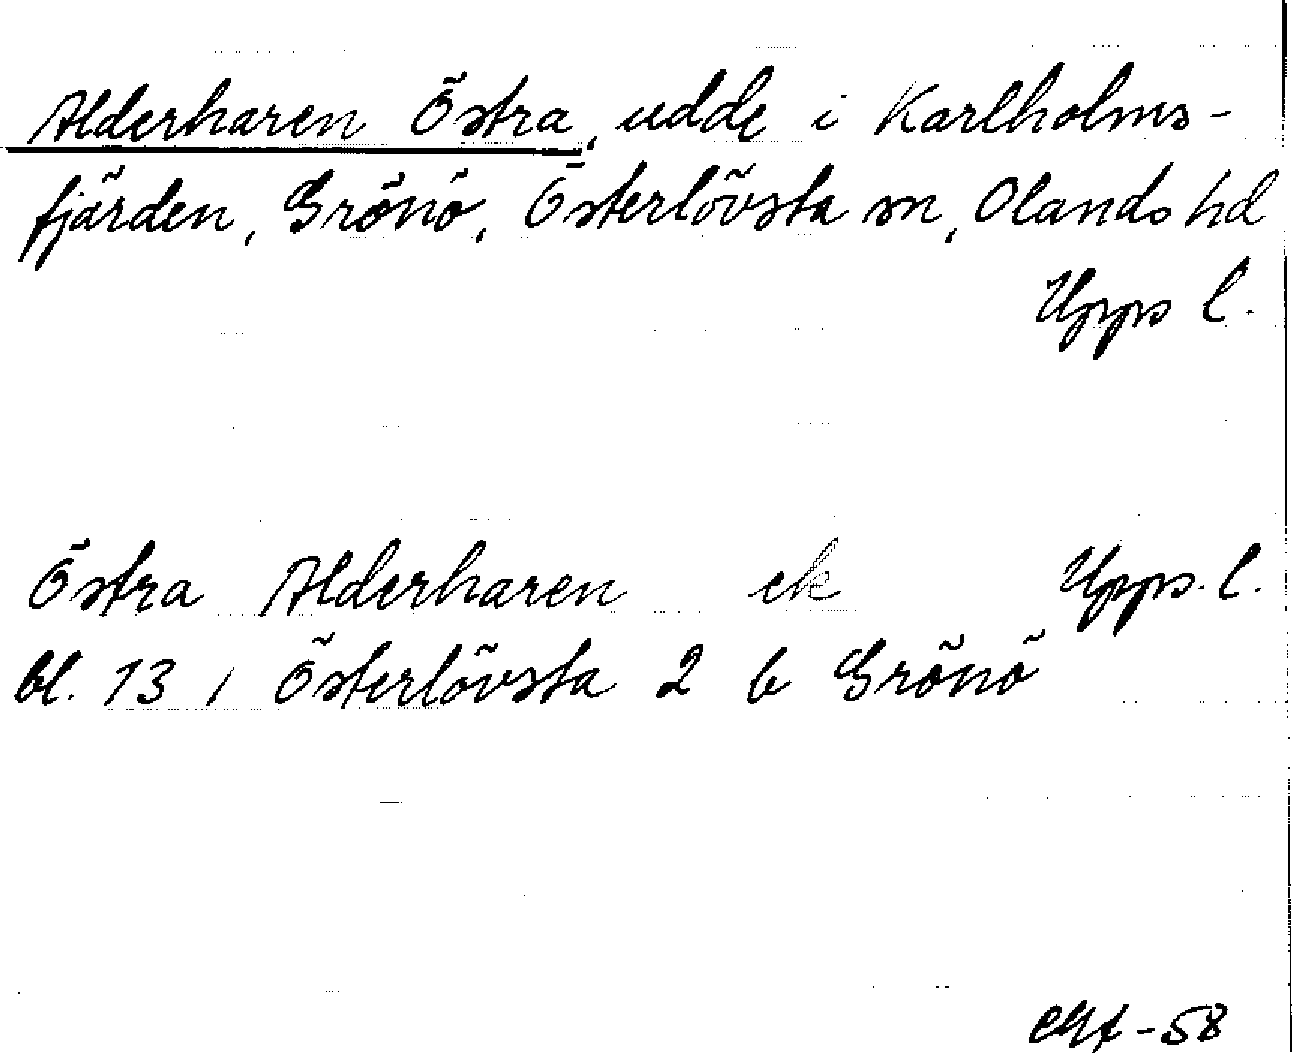 Alderharen Östra, udde i Karlholms-
fjärden, Grönö, Österlövsta sn, Olands hd
Upps l.
Östra Alderharen ek Upps. l.
bl. 13 i Österlövsta 2 b Grönö
-58